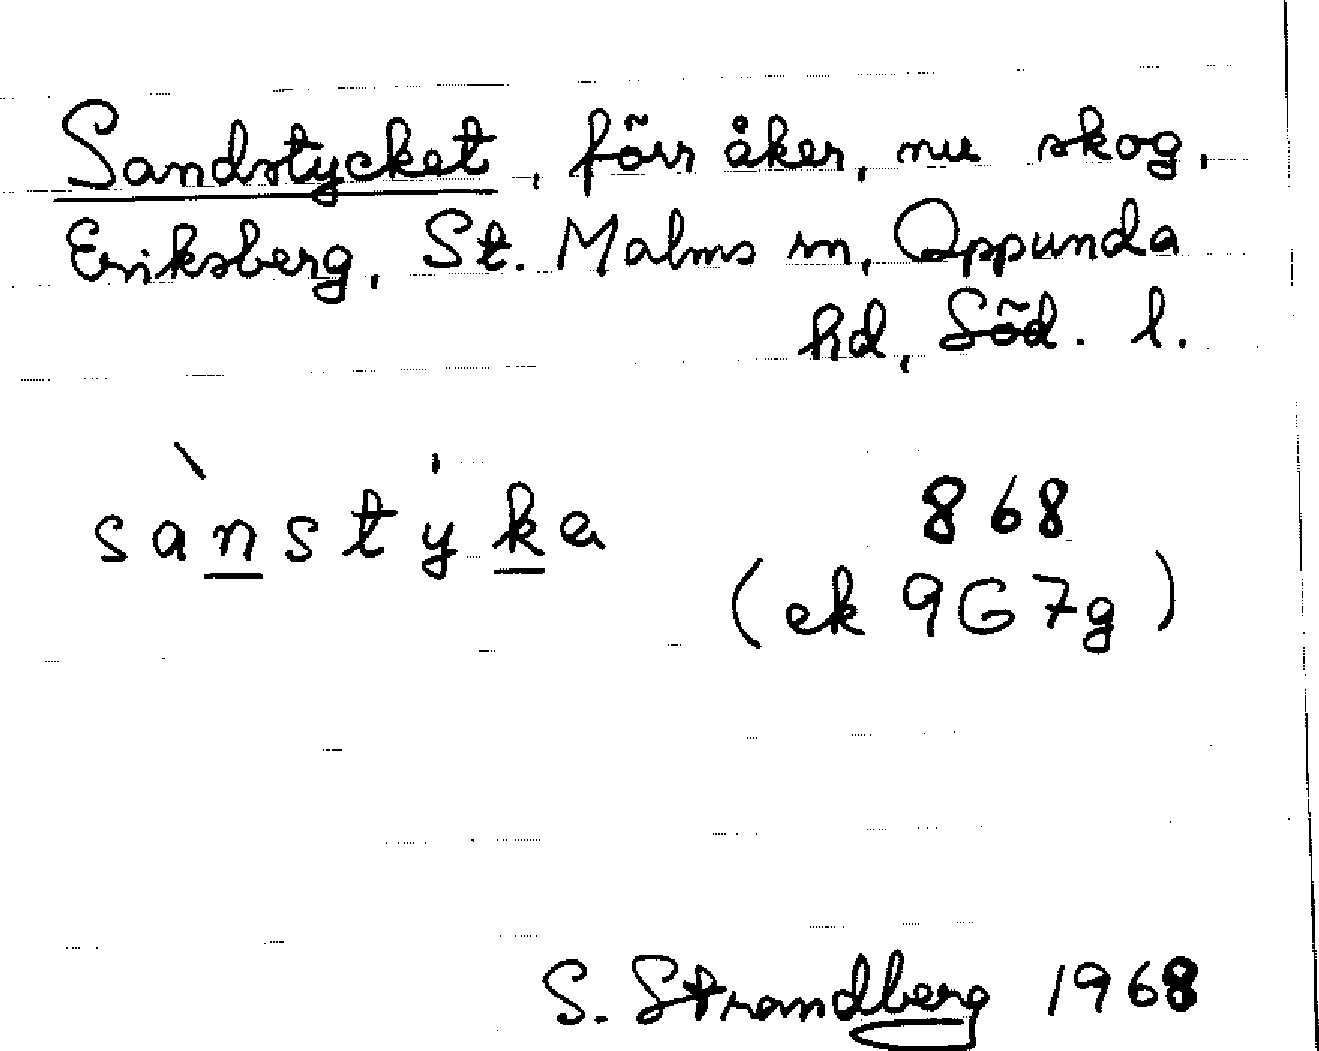 Sandstycket, förr åker, nu skog,
Eriksberg, St. Malms sn, Oppunda
hd, Söd. l.
sànstẏka
868
(ek 9G7g)
S. Strandberg 1968